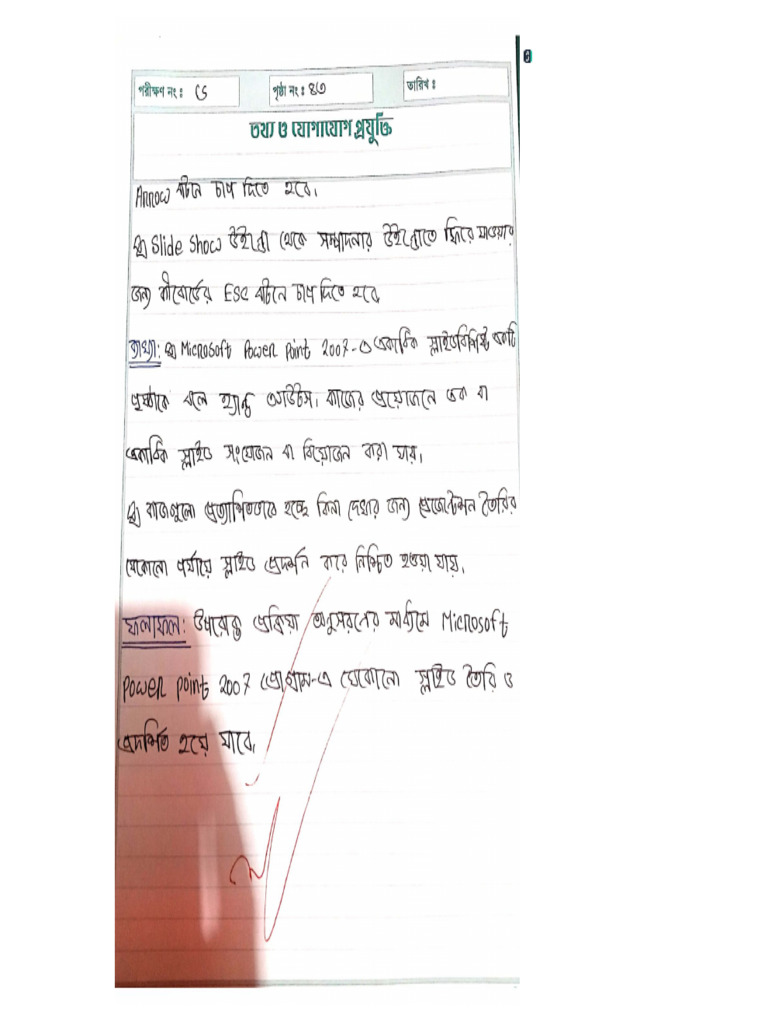 পরীক্ষণ নং : ৬ পৃষ্ঠা নং : ৪৩ তারিখ :
তথ্য ও যোগাযোগ প্রযুক্তি
Arrow বাটনে চাপ দিতে হবে।
Slide Show উইন্ডো থেকে সম্পাদনার উইন্ডোতে ফিরে যাওয়ার
জন্য কীবোর্ডের ESC বাটনে চাপ দিতে হবে
ব্যাখ্যা: Microsoft Power Point 2007-এ একাধিক স্লাইডবিশিষ্ট একটি
পৃষ্ঠাকে বলে হ্যান্ড আউটস। কাজের প্রয়োজনে এক বা
একাধিক স্লাইড সংযোজন বা বিয়োজন করা যায়।
কাজগুলো প্রত্যাশিতভাবে হচ্ছে কিনা দেখার জন্য প্রেজেন্টেশন তৈরির
যেকোনো পর্যায়ে স্লাইড প্রদর্শন করে নিশ্চিত হওয়া যায়।
ফলাফল: উপরোক্ত প্রক্রিয়া অনুসরণের মাধ্যমে Microsoft
Power Point 2007 প্রোগ্রাম-এ যেকোনো স্লাইড তৈরি ও
প্রদর্শিত হয়ে যাবে।